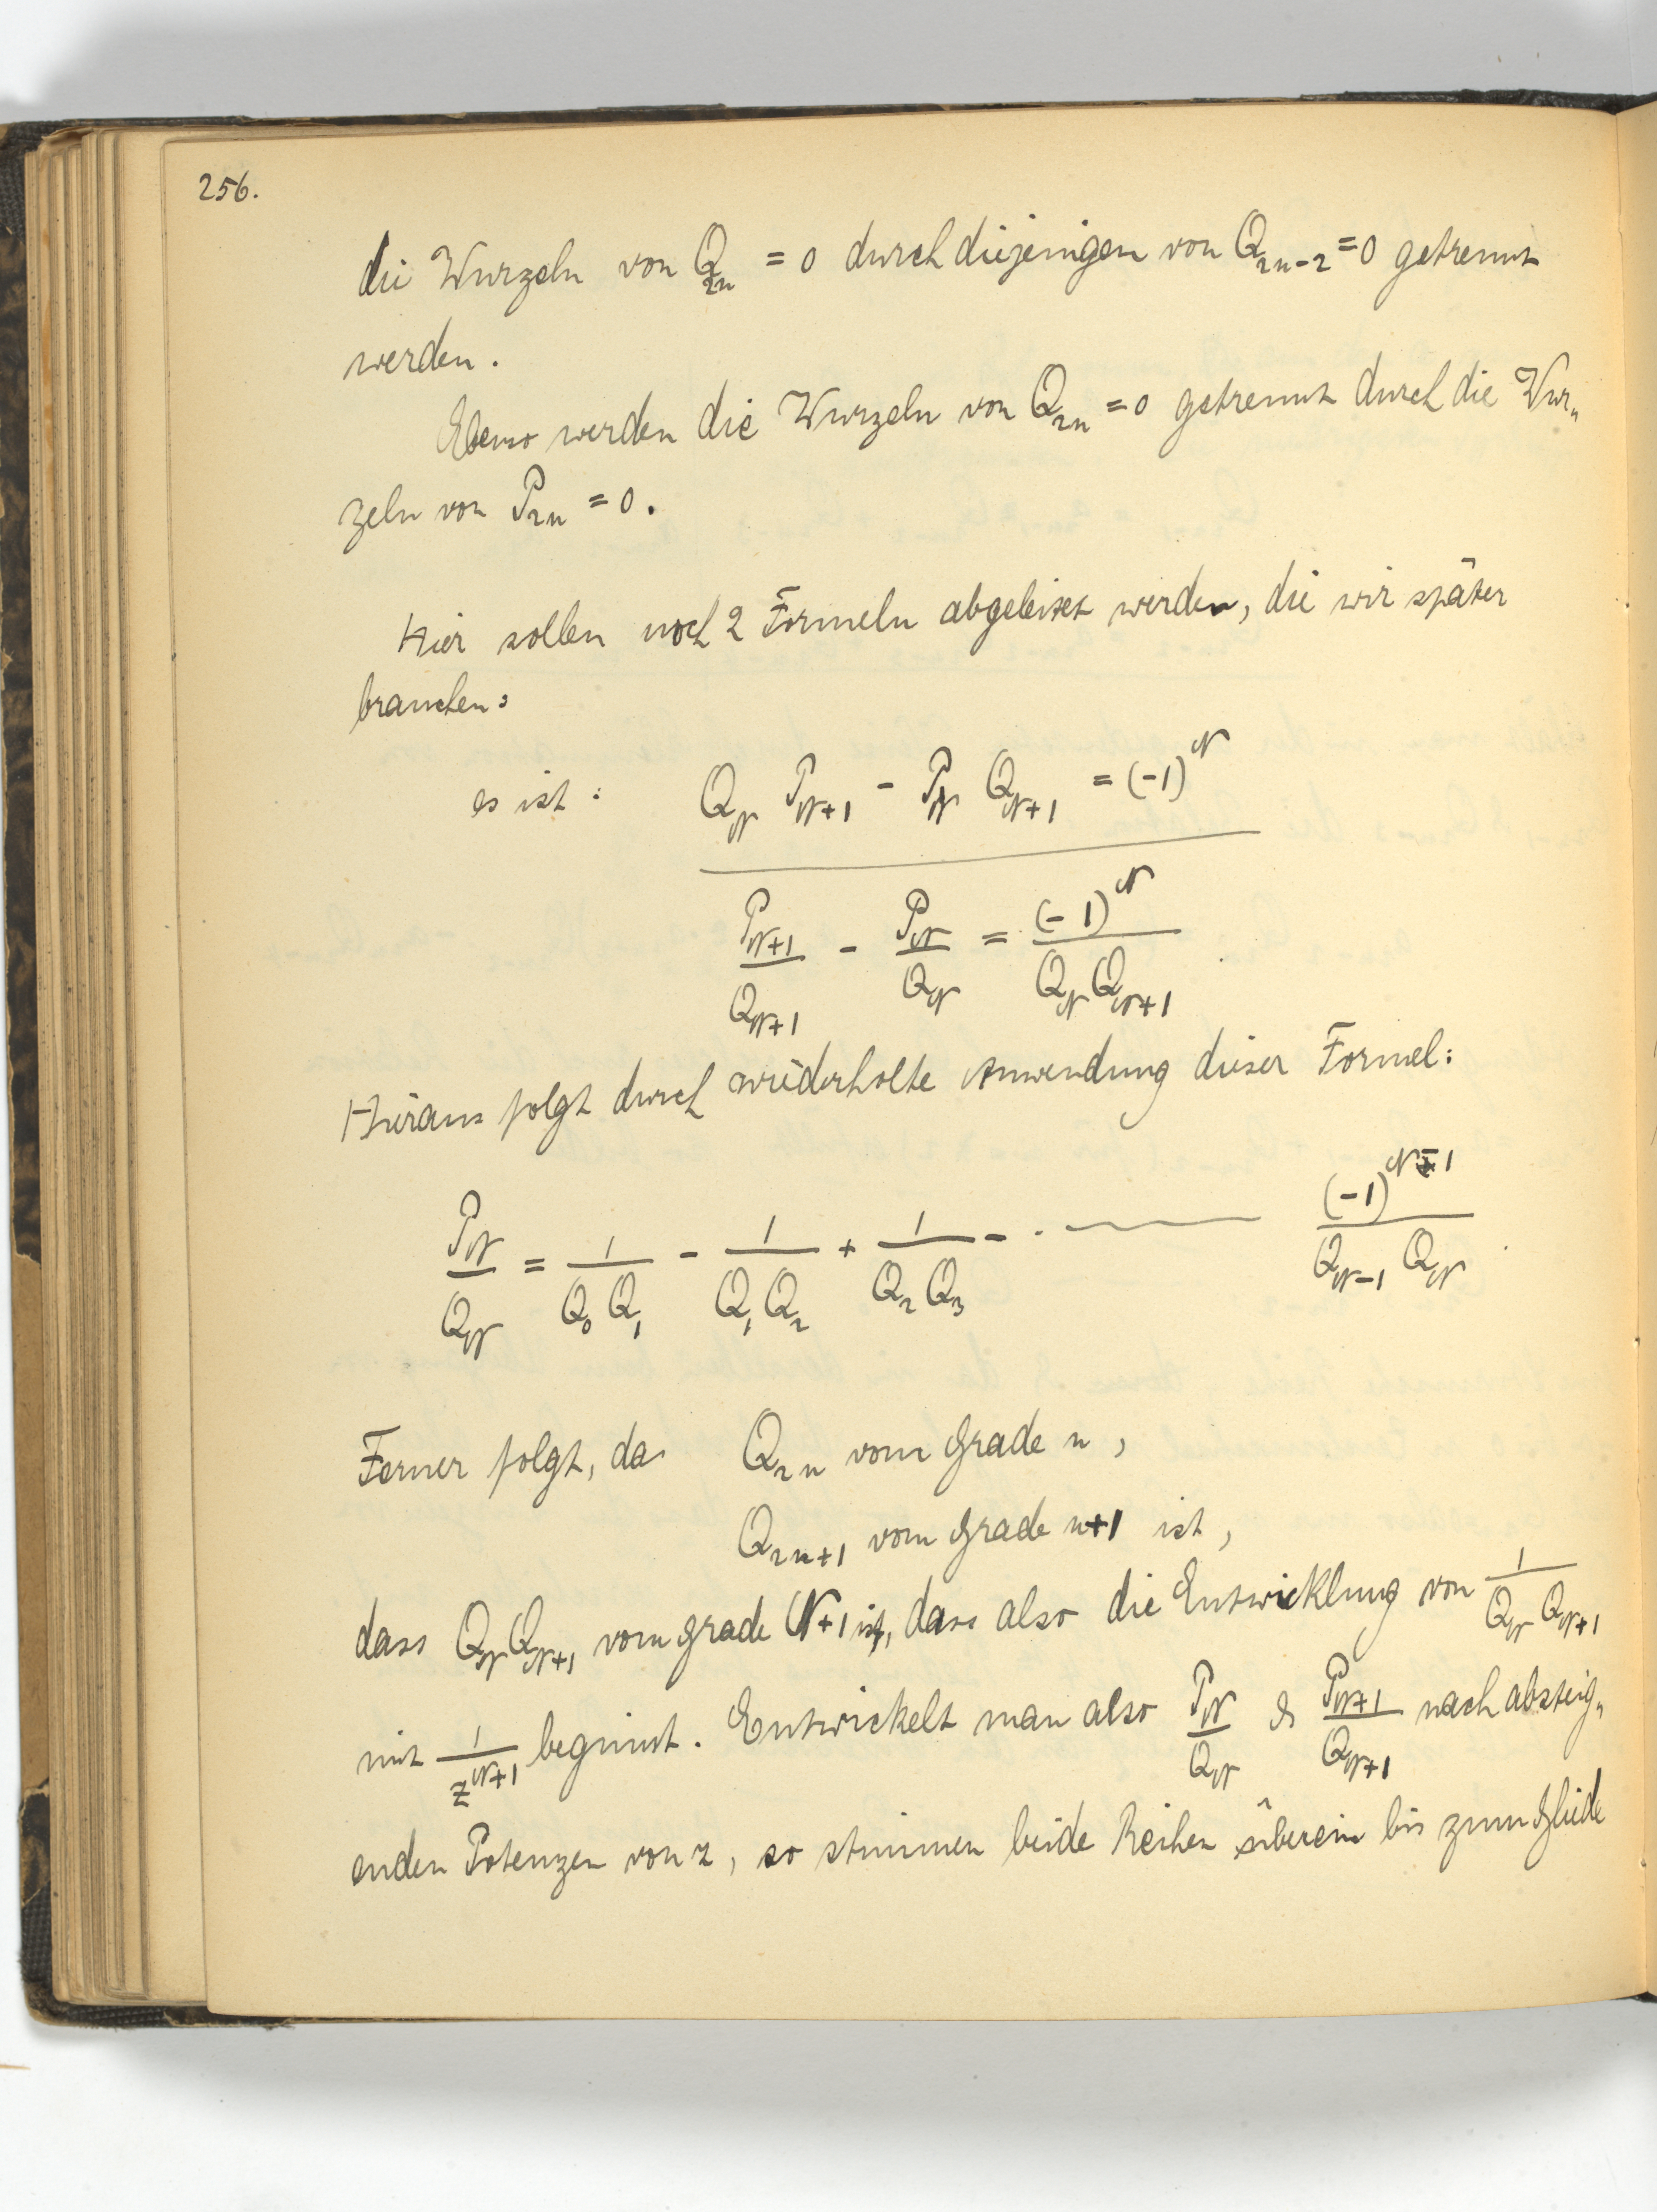 256.
die Wurzeln von Q_{2n} = 0 durch diejenigen von Q_{2n-2} = 0 getrennt
werden.
Ebenso werden die Wurzeln von Q_{2n} = 0 getrennt durch die Wur„
zeln von P_{2n} = 0.
Hier sollen noch 2 Formeln abgeleitet werden, die wir später
brauchen:
es ist: Q_N P_{N+1} - P_N Q_{N+1} = (-1)^N
P_{N+1}/Q_{N+1} - P_N/Q_N = (-1)^N/(Q_N Q_{N+1})
Hieraus folgt durch wiederholte Anwendung dieser Formel:
P_N/Q_N = 1/(Q_0 Q_1) - 1/(Q_1 Q_2) + 1/(Q_2 Q_3) - · —— (-1)^{N-1}/(Q_{N-1} Q_N).
Ferner folgt, da Q_{2n} vom Grade n,
Q_{2n+1} vom Grade n+1 ist,
dass Q_N Q_{N+1} vom Grade N+1 ist, dass also die Entwicklung von 1/(Q_N Q_{N+1})
mit 1/z^{N+1} beginnt. Entwickelt man also P_N/Q_N & P_{N+1}/Q_{N+1} nach absteig„
enden Potenzen von z, so stimmen beide Reihen überein bis zum Gliede